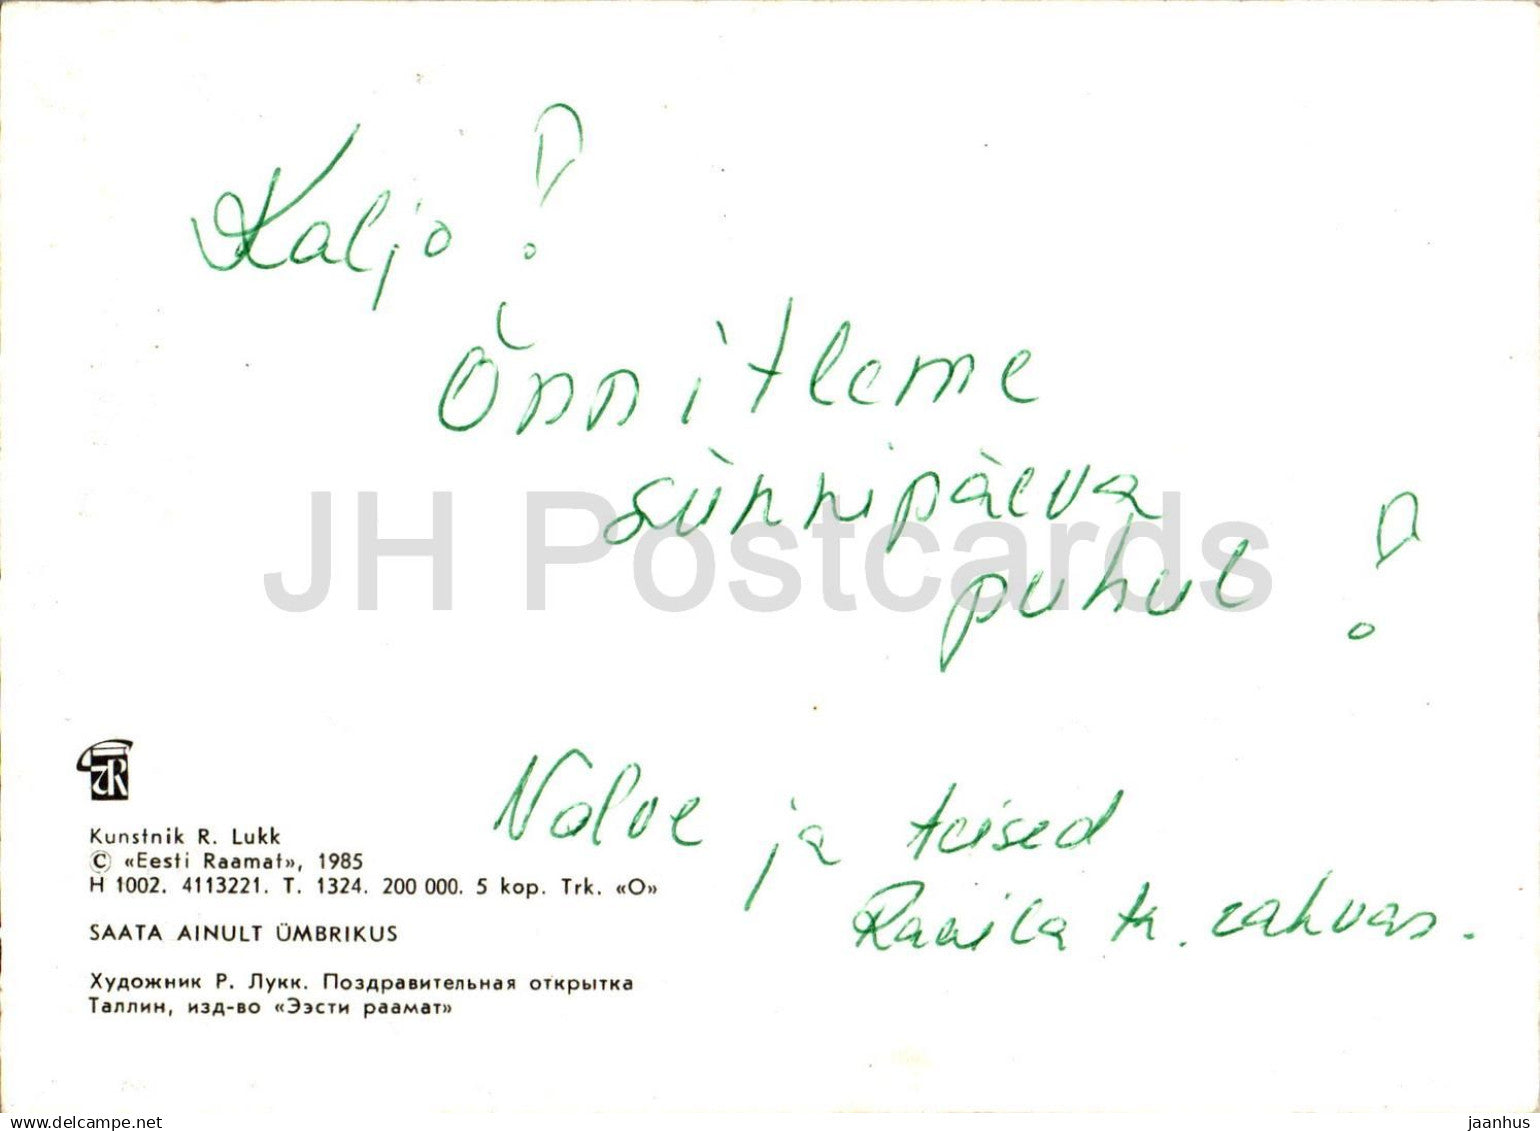 Kaljo!
Õnnitleme
sünnipäeva
puhul!
Nalve ja teised
tn. rahvas.
JH Postcards
Kunstnik R. Lukk
© «Eesti Raamat», 1985
H 1002. 4113221. T. 1324. 200 000. 5 kop. Trk. «O»
SAATA AINULT ÜMBRIKUS
Художник Р. Лукк. Поздравительная открытка
Таллин, изд-во «Ээсти раамат»
www.delcampe.net
jaanhus